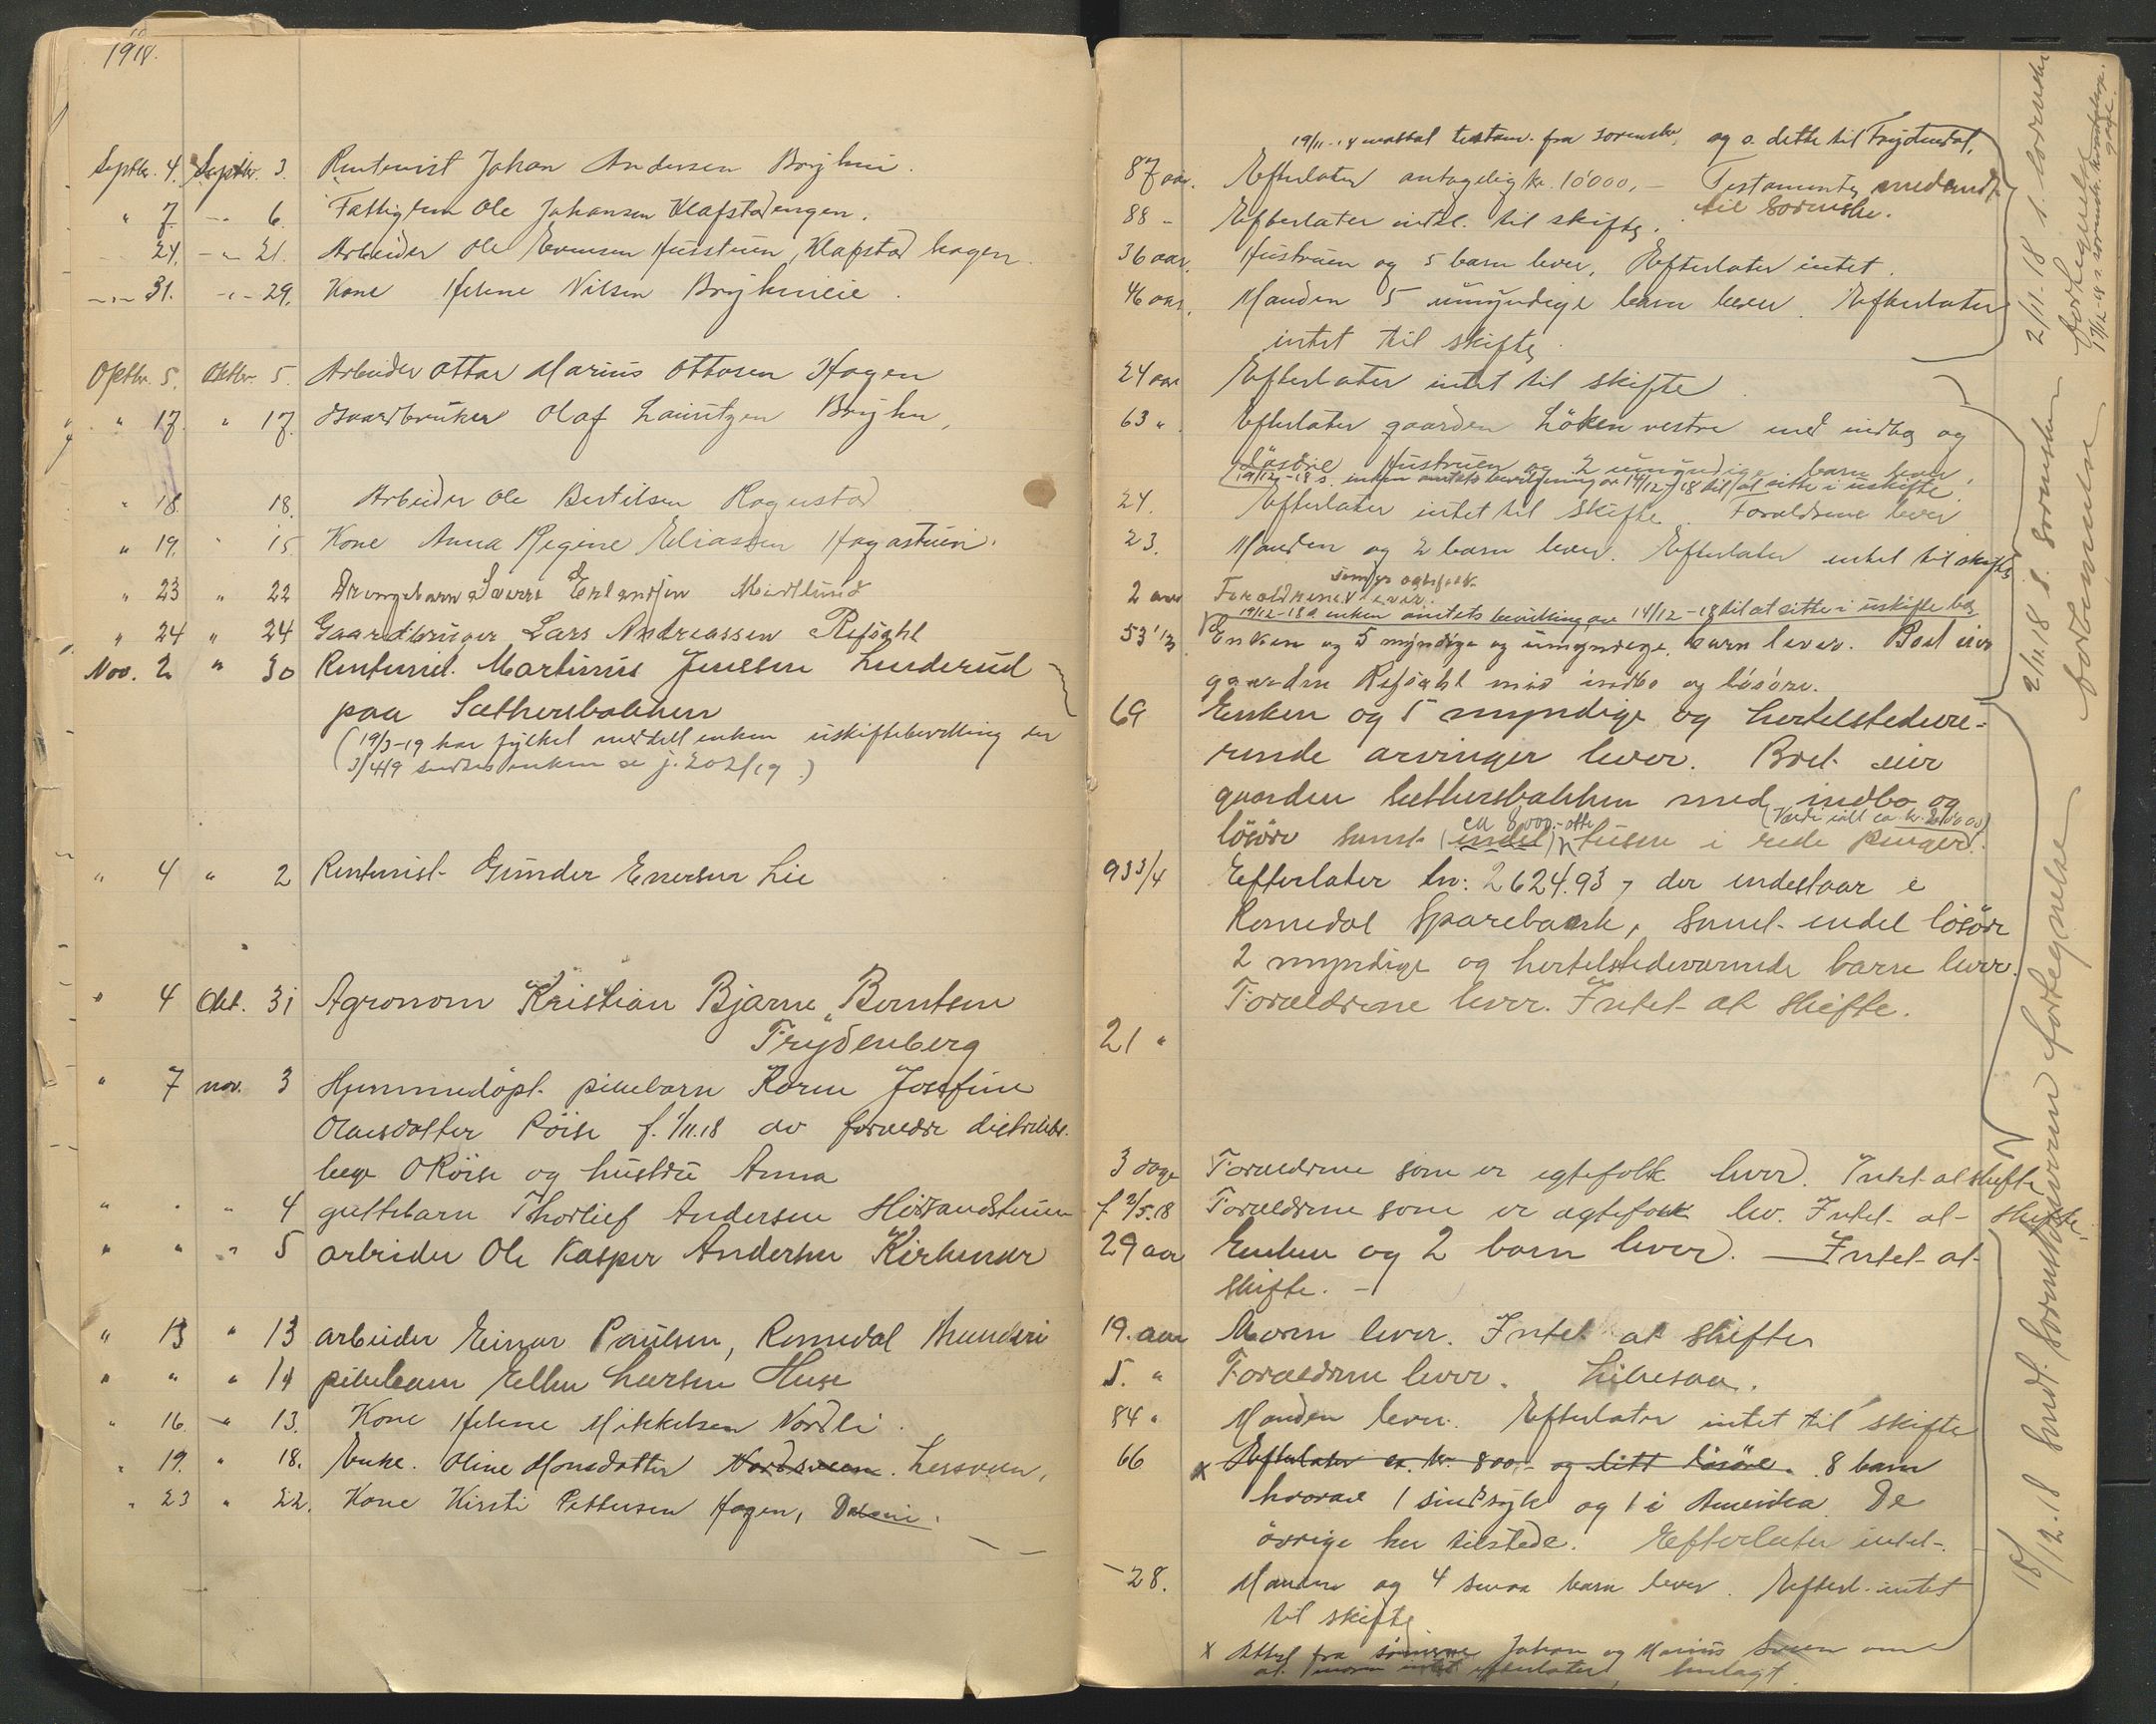 1918.
Septbr. 4. Septbr. 3. Rentenist Johan Andersen Bryhni.
" 7. -"- 6. Fattiglem Ole Johansen Klafstadengen.
24. -"- 21. Arbeider Ole Evensen Husstuen, Klafstad hagen.
-"- 31. -"- 29. Kone Helene Nilsen Bryhnieie.
Oktbr. 5. Oktbr. 5. Arbeider Ottar Marius Ottosen Hagen
" 17. " 17. Gaardbruker Olaf Lauritzen Bryhn,
" 18. 18. Arbeider Ole Bertilsen Rogustad
" 19. " 15 Kone Anna Regine Eliassen Hagastuen.
" 23 " 22 Drengebarn Sverre Erlandsen Midtlund
" 24 " 24 Gaardbruger Lars Andreassen Refsahl
Nov. 2 " 30 Rentenist. Martinus Jenssen Linderud
paa Sæthersbakken
(19/3-19 har fylket meddelt enken uskiftebevilling der
3/4 19 sendtes enken se j. 202/19.)
" 4 " 2 Rentenist Gunder Enersen Lie
" 4 Okt. 31 Agronom Kristian Bjarne Berntsen
Frydenberg
" 7 nov. 3 Hjemmedöpt pikebarn Karen Josefine
Olavsdatter Röise f. 1/11.18 av forældre distrikts-
læge O Röise og hustru Anna
" " " 4 guttebarn Thorlief Andersen
" " " 5 arbeider Ole Kasper Andersen Kirkener
" 13 " 13 arbeider Einar Paulsen, Romedal
" " " 14 pikebarn Ellen Larsen Huse
" 16 " 13. Kone Helene Mikkelsen Nordli.
" 19. " 18. Enke. Oline Monsdatter Nordsveen. Lersveen,
" 23 " 22. Kone Kirsti Pettersen Hagen,
19/11-18 testam. fra sorenskr. og s. dette til Frydendal.
87 aar. Efterlater antagelig kr. 10'000,- Testamente medsendt
til Sorenskr.
88 - Efterlater intet til skifte.
36 aar. Hustruen og 5 barn lever. Efterlater intet.
46 aar. Manden 5 umyndige barn lever. Efterlater
intet til skifte.
24 aar Efterlater intet til skifte.
63 " Efterlater gaarden Löken vestre med indbo og
Lösöre Hustruen og 2 umyndige barn lever.
(19/12-18 s. enken amtets bevilgning av 14/12-18 til at sitte i uskifte.
24. Efterlater intet til skifte. Forældrene lever
23. Manden og 2 barn lever. Efterlater intet til skifte
som er egtefolk
2 aar Forældrene lever.
19/12-18 s. enken amtets bevilling av 14/12-18 til at sitte i uskifte bo
53 1/2 Enken og 5 myndige og umyndige barn lever. Boet eier
gaarden Refsahl med indbo og lösöre.
69 Enken og 5 myndige og hertelstedvæ-
rende arvinger lever. Boet eier
gaarden Sæthersbakken med indbo og
(Værdi ialt ca. kr. 20000)
ca 8,000.- otte
lösöre samt (endel) tusen i rede penger.
93 3/4 Efterlater kr: 2624.93, der indestaar i
Romedal Sparebank, samt endel lösöre
2 myndige og hertelstedværende barn lever.
Forældrene lever. Intet at skifte.
21 "
3 dage Forældrene som er egtefolk lever. Intet at skifte
f 2/5.18 Forældrene som er egtefolk lev. Intet at skifte
29 aar Enken og 2 barn lever. - Intet at
skifte. -
19. aar Moren lever. Intet at skifte
5. " Forældrene lever. Likesaa.
84 " Manden lever. Efterlater intet til skifte
66 x Efterlater ca. kr. 800,- og litt lösöre. 8 barn
hvorav 1 sindsyk og 1 i Amerika. De
övrige her tilstede. Efterlater intet.
28. Manden og 4 smaa barn lever. Efterl. intet
til skifte
x Attest fra sönnerne Johan og Marius Sveen om
at moren intet efterlater, henlagt.
2/11-18 s. sorenskr. fortegnelse
2/11.18 s. Sorenskr. fortegnelse
18/12.18 sendt Sorenskriveren fortegnelse